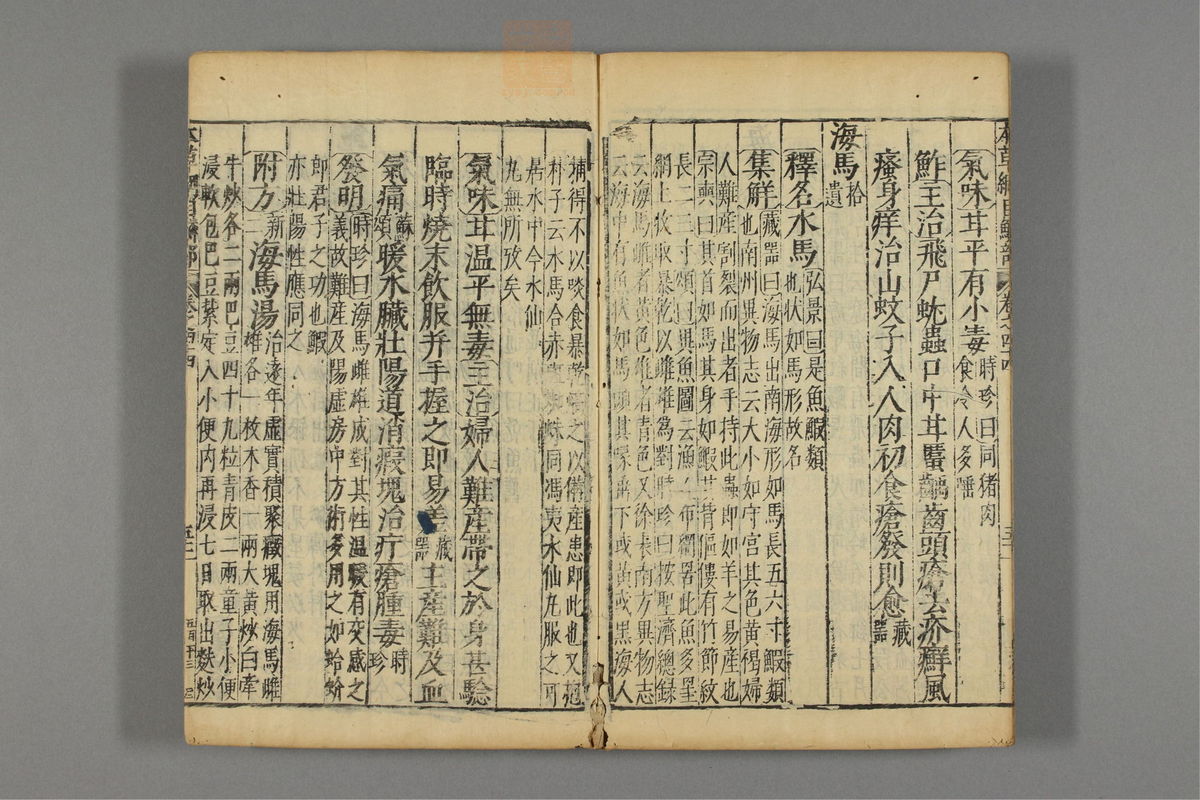 氣味甘平有小毒時珍曰同猪肉食令人多唾
鮓主治飛尸蚘蟲口中甘䘌齲齒頭瘡去疥癬風
瘙身痒治山蚊子入人肉初食瘡發則愈藏器
海馬拾遺
釋名水馬弘景曰是魚鰕類也狀如馬形故名
集解藏器曰海馬出南海形如馬長五六寸鰕類也南州異物志云大小如守宮其色黃褐婦
人難産割裂而出者手持此蟲即如羊之易産也
宗奭曰其首如馬其身如鰕其背傴僂有竹節紋
長二三寸頌曰異魚圖云漁人布網罟此魚多罣
網上收取暴乾以雌雄爲對時珍曰按聖濟總錄
云海馬雌者黃色雄者青色又徐表南方異物志
云海中有魚狀如馬頭其喙垂下或黃或黑海人
捕得不以啖食暴乾之以備産患即此也又
朴子云水馬合赤洞馮夷水仙丸服之可
居水中今水仙
丸無所攷矣
氣味甘温平無毒主治婦人難産帶之於身甚驗
臨時燒末飲服并手握之即易産藏器主産難及血
氣痛蘇頌暖水臟壯陽道消瘕塊治疔瘡腫毒時珍
發明時珍曰海馬雌雄成對其性温暖有交感之義故難産及陽虛房中方術多用之如蛤蚧
即君子之功也鰕
亦壯陽性應同之
附方新海馬湯治遠年虛實積聚癥塊用海馬雌雄各一枚木香一兩大黃炒白牽
牛炒各二兩巴豆四十九粒青皮二兩童子小便
浸軟包巴豆紮定入小便内再浸七日取出麩炒